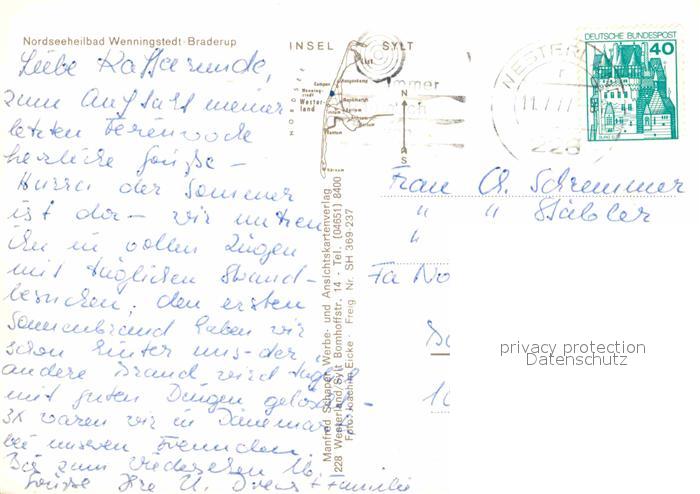 Nordseeheilbad Wenningstedt-Braderup
INSEL SYLT
Liebe Kaffeerunde,
zum Auftakt meiner
letzten Ferienwoche
herzliche Grüße –
Hurra der Sommer
ist da – wir nutzen
ihn in vollen Zügen
mit täglichen Strand-
besuchen, den ersten
Sonnenbrand haben wir
schon hinter uns - der
andere Brand wird
mit guten Dingen gelöscht –
3x waren wir in Dänemark
bei unseren Freunden.
Bis zum Wiedersehen
Grüße Ihre U. + Familie
NORDSEE
List
Kampen
Wester-
land
Rantum
Hörnum
N
S
Manfred Schaper Werbe- und Ansichtskartenverlag
228 Westerland/Sylt Bomhoffstr. 14 · Tel. (04651) 8400
Foto: Joachim Eicke Freig. Nr. SH 369-237
immer
WESTERL
11.7.77
228
DEUTSCHE BUNDESPOST
40
BURG ELTZ
Frau A. Schremmer
" " Stäbler
"
Fa No
privacy protection
Datenschutz